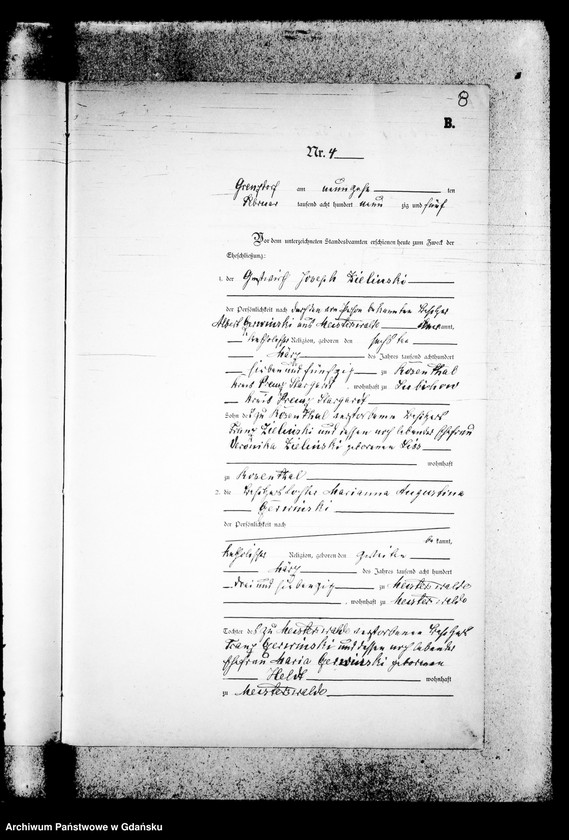 8
B.
Nr. 4
am neunzehn ten
Februar tausend acht hundert neun zig und fünf
Vor dem unterzeichneten Standesbeamten erschienen heute zum Zweck der
Eheschließung:
1. der Joseph Zielinski
der Persönlichkeit nach durch den von Person bekannten Besitzer
Albert Gerwinski aus Meisterswalde kannt,
katholischer Religion, geboren den sechsten
März des Jahres tausend achthundert
sieben und fünfzig zu Rosenthal
Kreis Preuß Stargardt, wohnhaft zu
Kreis Preuß Stargardt
Sohn des zu Rosenthal verstorbenen Besitzers
Franz Zielinski und dessen noch lebenden Ehefrau
Veronika Zielinski geborenen
wohnhaft
zu Rosenthal
2. die Besitzertochter Marianna Augustina
Gerwinski
der Persönlichkeit nach
be kannt,
katholischer Religion, geboren den zweiten
März des Jahres tausend acht hundert
drei und siebenzig zu Meisterswalde
, wohnhaft zu Meisterswalde
Tochter des zu Meisterswalde verstorbenen Besitzers
Franz Gerwinski und dessen noch lebenden
Ehefrau Maria Gerwinski geborenen
Heldt wohnhaft
zu Meisterswalde
Archiwum Państwowe w Gdańsku